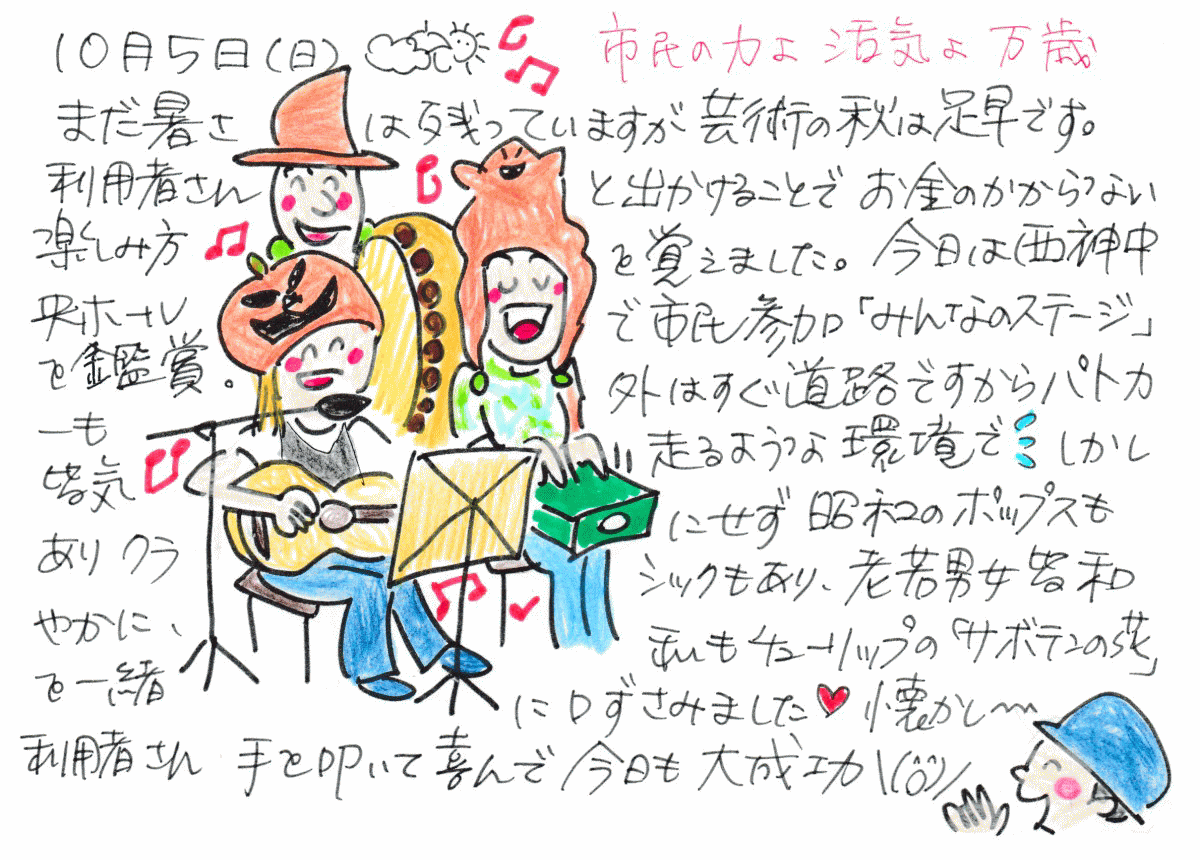 10月5日(日)
市民の力よ 活気よ 万歳
まだ暑さは残っていますが芸術の秋は足早です。
利用者さんと出かけることで お金のかからない
楽しみ方を覚えました。今日は西神中
央ホールで市民参加「みんなのステージ」
を鑑賞。外はすぐ道路ですからパトカ
ーも走るような環境で しかし
皆気にせず 昭和のポップスも
ありクラシックもあり、老若男女皆和
やかに、私もチューリップの「サボテンの花」
を一緒に口ずさみました 懐かし〜
利用者さん 手を叩いて喜んで 今日も 大成功\(^o^)/